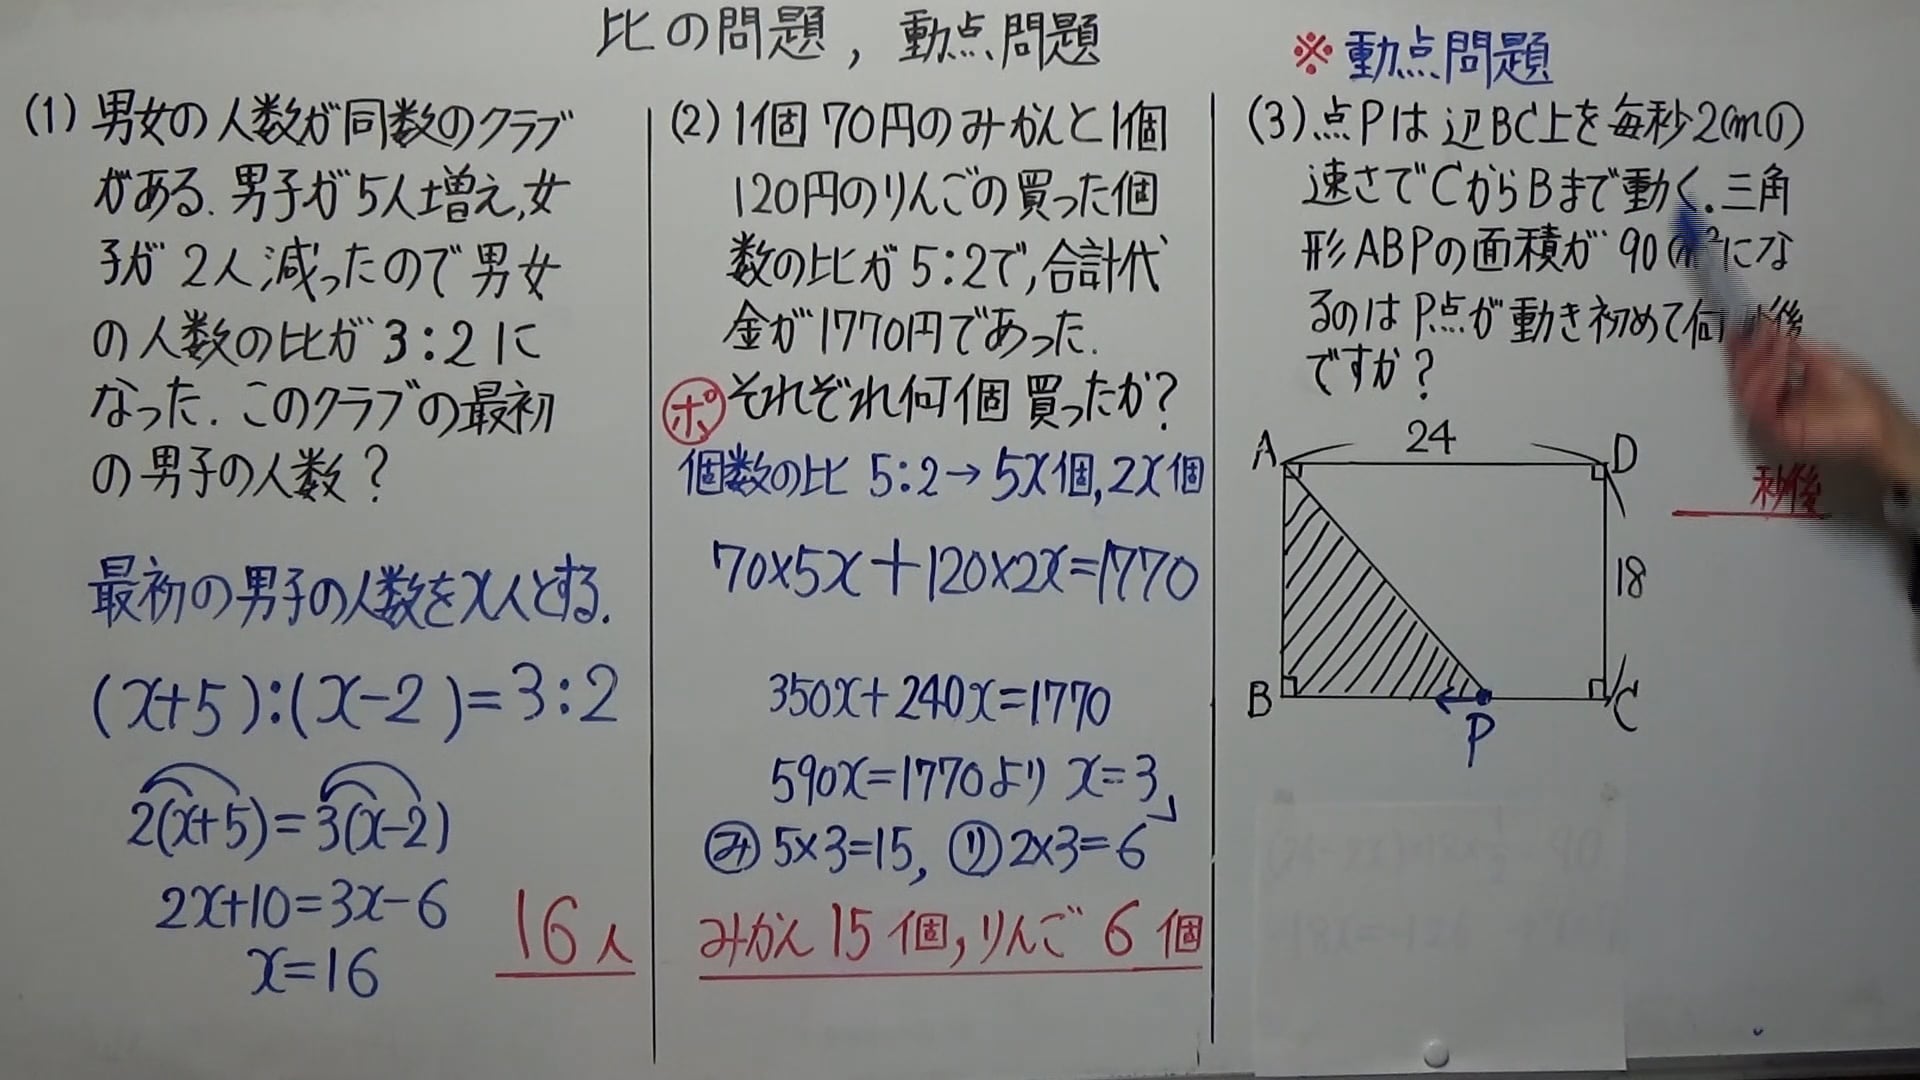 比の問題，動点問題
(1) 男女の人数が同数のクラブ
がある. 男子が5人増え,女
子が2人減ったので男女
の人数の比が3:2に
なった. このクラブの最初
の男子の人数？
最初の男子の人数をx人とする.
(x+5):(x-2)=3:2
2(x+5)=3(x-2)
2x+10=3x-6
x=16
16人
(2) 1個70円のみかんと1個
120円のりんごの買った個
数の比が5:2で,合計代
金が1770円であった.
ポ それぞれ何個買ったか？
個数の比 5:2→5x個,2x個
70×5x+120×2x=1770
350x+240x=1770
590x=1770より x=3
み 5×3=15, り 2×3=6
みかん15個,りんご6個
※動点問題
(3) 点Pは辺BC上を毎秒2cmの
速さでCからBまで動く.三角
形ABPの面積が90cm²にな
るのはP点が動き初めて何 後
ですか？
秒後
A 24 D
18
B P C